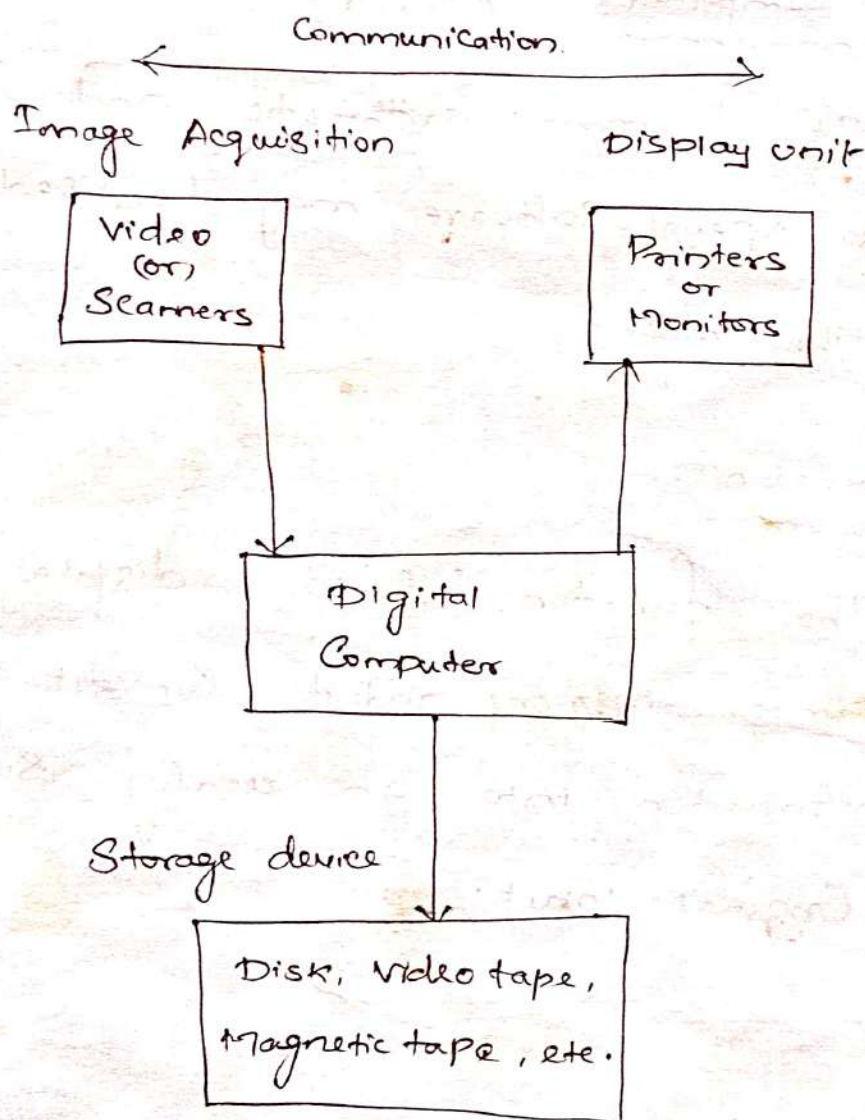 Communication.
Image Acquisition
Display unit
Video
(or)
Scanners
Printers
or
Monitors
Digital
Computer
Storage device
Disk, Video tape,
Magnetic tape, etc.